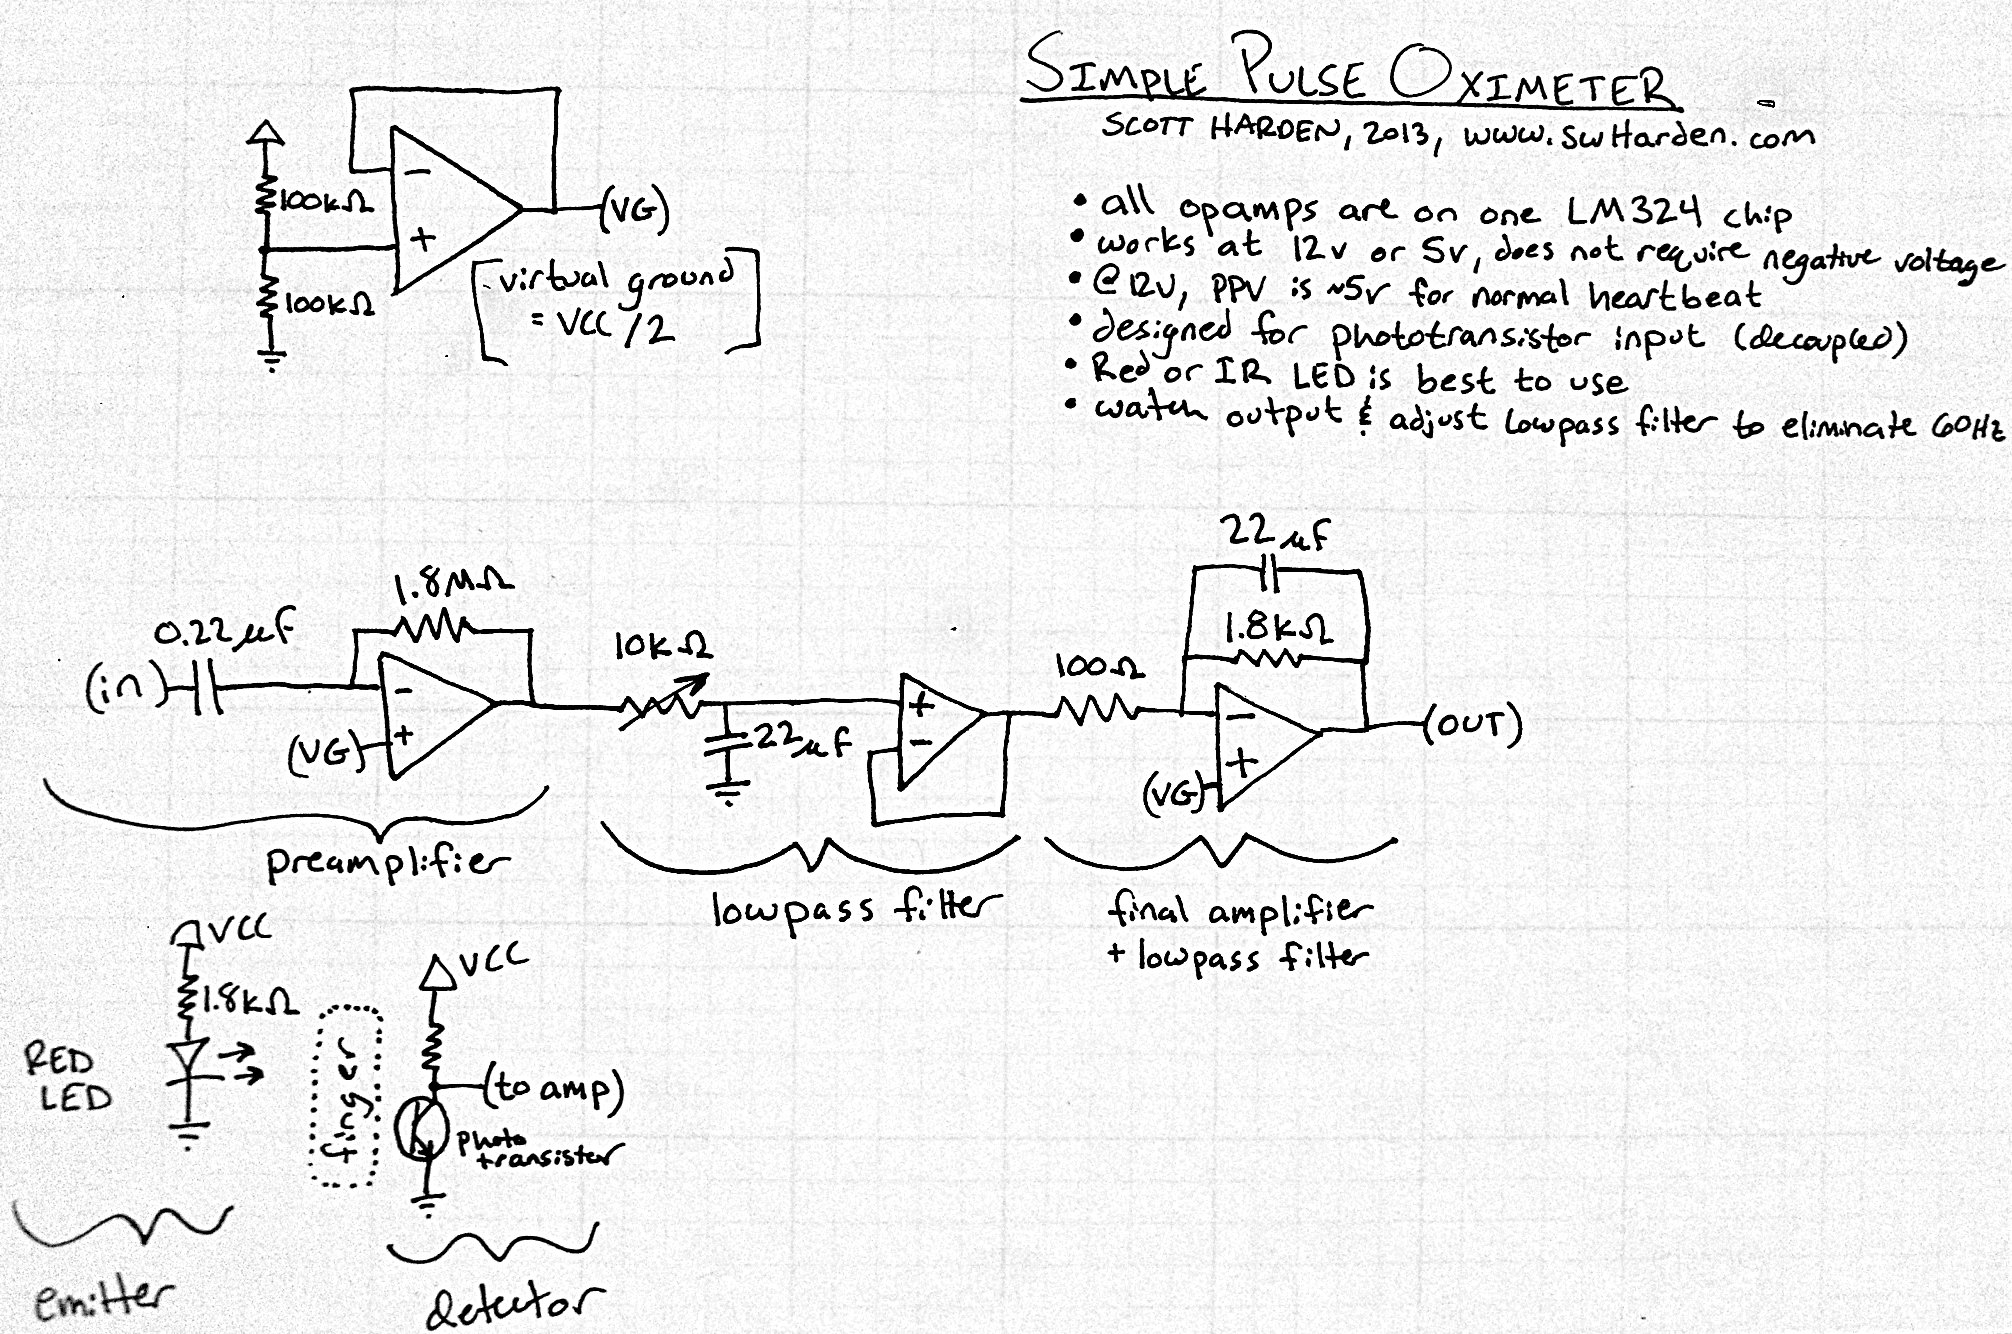 SIMPLE PULSE OXIMETER
SCOTT HARDEN, 2013, www.SwHarden.com
• all opamps are on one LM324 chip
• works at 12v or 5v, does not require negative voltage
• @12v, PPV is ~5v for normal heartbeat
• designed for phototransistor input (decoupled)
• Red or IR LED is best to use
• watch output & adjust lowpass filter to eliminate 60Hz
100kΩ
100kΩ
-
+
(VG)
virtual ground
= VCC/2
(in)
0.22μf
1.8MΩ
-
+
(VG)
preamplifier
10kΩ
22μf
+
-
lowpass filter
100Ω
22μf
1.8kΩ
-
+
(VG)
(OUT)
final amplifier
+ lowpass filter
VCC
1.8kΩ
RED
LED
emitter
finger
VCC
(to amp)
photo
transistor
detector